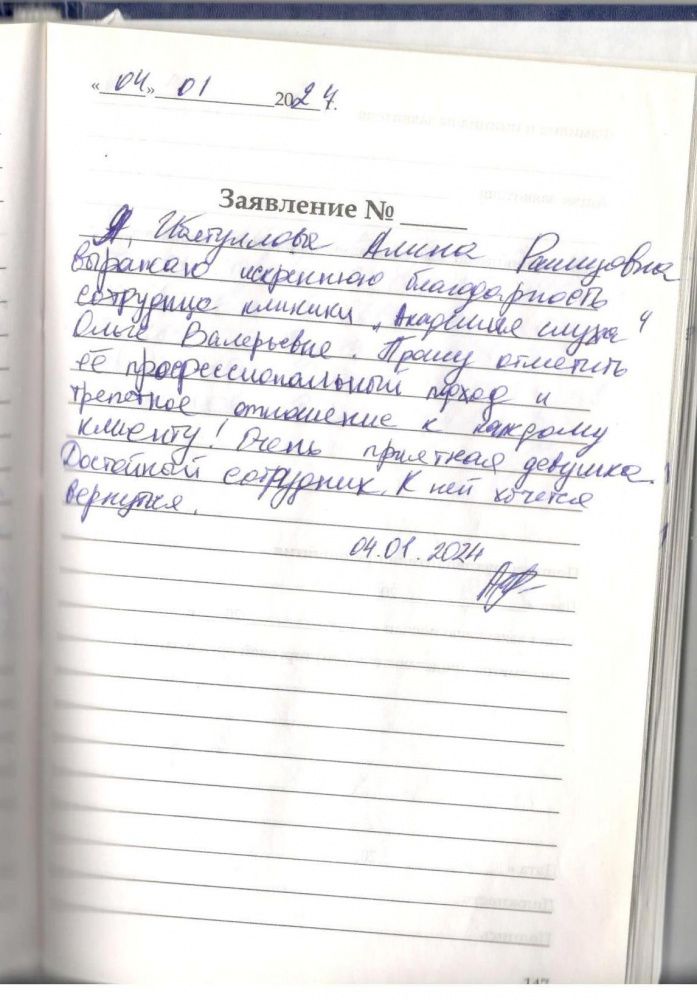 «04» 01 2024 г.
Заявление №
Я, Алина Рашидовна
выражаю искреннюю благодарность
сотруднице клиники „Академия слуха“
Ольге Валерьевне. Прошу отметить
её профессиональный подход и
трепетное отношение к каждому
клиенту! Очень приятная девушка.
Достойный сотрудник. К ней хочется
вернуться.
04.01.2024
147